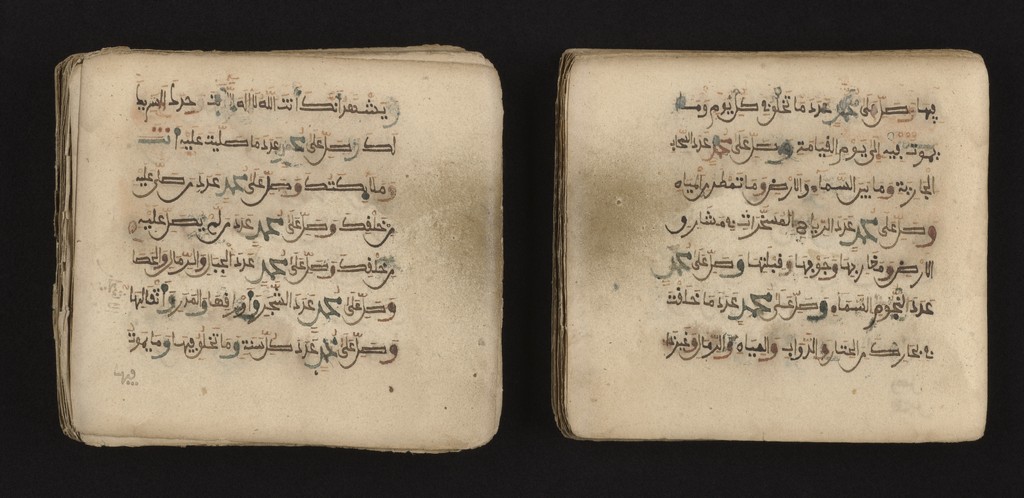 ويشهد أنك أنت الله لا إله إلا أنت وحدك لا شريك
لك وصل على محمد عدد ما صليت عليه أنت
وملائكتك وصل على محمد عدد من صلى عليه
من خلقك وصل على محمد عدد من لم يصل عليه
من خلقك وصل على محمد عدد الجبال والرمال والحصا
وصل على محمد عدد الشجر وأوراقها والمدر وأثقالها
وصل على محمد عدد كل سنة وما تخلق فيها وما يموت
فيها
فيها وصل على محمد عدد ما تخلق في كل يوم وما
يموت فيه إلى يوم القيامة وصل على محمد عدد السحاب
الجارية وما بين السماء والارض وما تمطر من المياه
وصل على محمد عدد الرياح المسخرات في مشارق
الارض ومغاربها وجوفها وقبلتها وصل على محمد
عدد نجوم السماء وصل على محمد عدد ما خلقت
في بحارك من الحيتان والدواب والمياه والرمال وغير ذلك